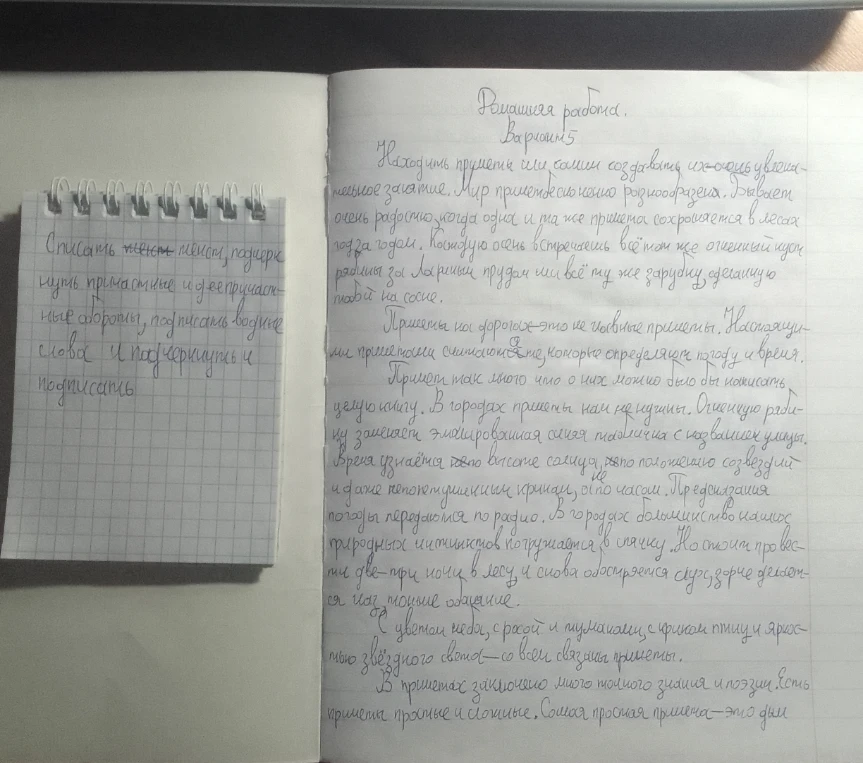 Списать текст текст, подчерк
нуть причастные и деепричаст-
ные обороты, подписать водные
слова и подчеркнуть и
подписать
Домашняя работа.
Вариант 5
Находить приметы или самим создавать их-очень увлека-
тельное занятие. Мир примет бесконечно разнообразен. Бывает
очень радостно, когда одна и та же примета сохраняется в лесах
год за годом. Каждую осень встречаешь всё тот же огненный куст
рябины за Лариным прудом или всё ту же зарубку, сделанную
тобой на сосне.
Приметы на дорогах-это не главные приметы. Настоящи-
ми приметами считаются те, которые определяют погоду и время.
Примет так много что о них можно было бы написать
целую книгу. В городах приметы нам не нужны. Огненную ряби-
ну заменяет эмалированная синяя табличка с названием улицы.
Время узнаётся не по высоте солнца, не по положению созвездий
и даже не по петушиным крикам, а по часам. Предсказания
погоды передаются по радио. В городах большинство наших
природных инстинктов погружается в спячку. Но стоит провес-
ти две-три ночи в лесу, и снова обостряется слух, зорче делает-
ся глаз, тоньше обоняние.
С цветом неба, с росой и туманами, с криком птиц и ярко-
стью звёздного света-со всем связаны приметы.
В приметах заключено много точного знания и поэзии. Есть
приметы простые и сложные. Самая простая примета-это дым